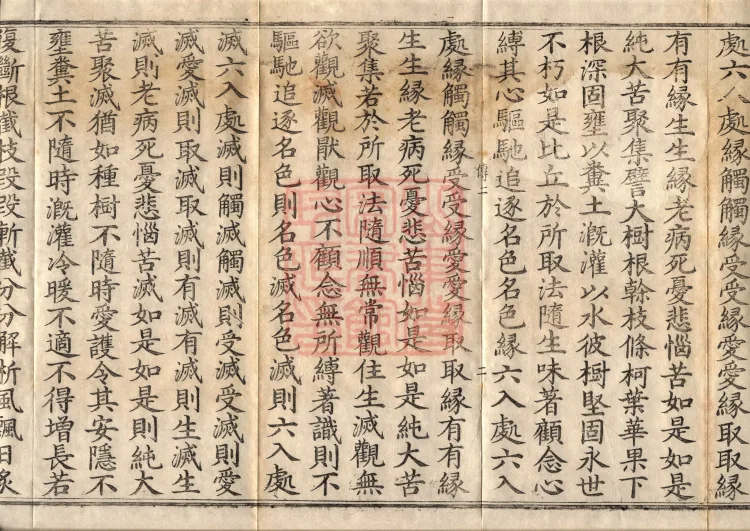 處六入處緣觸觸緣受受緣愛愛緣取取緣
有有緣生生緣老病死憂悲惱苦如是如是
純大苦聚集譬大樹根幹枝條柯葉華果下
根深固壅以糞土溉灌以水彼樹堅固永世
不朽如是比丘於所取法隨生味著顧念心
縛其心驅馳追逐名色名色緣六入處六入
處緣觸觸緣受受緣愛愛緣取取緣有有緣
生生緣老病死憂悲苦惱如是如是純大苦
聚集若於所取法隨順無常觀住生滅觀無
欲觀滅觀猒觀心不顧念無所縛著識則不
驅馳追逐名色則名色滅名色滅則六入處
滅六入處滅則觸滅觸滅則受滅受滅則愛
滅愛滅則取滅取滅則有滅有滅則生滅生
滅則老病死憂悲惱苦滅如是如是則純大
苦聚滅猶如種樹不隨時愛護令其安隱不
壅糞土不隨時溉灌冷暖不適不得增長若
復斷根截枝段段斬截分分解析風飄日炙